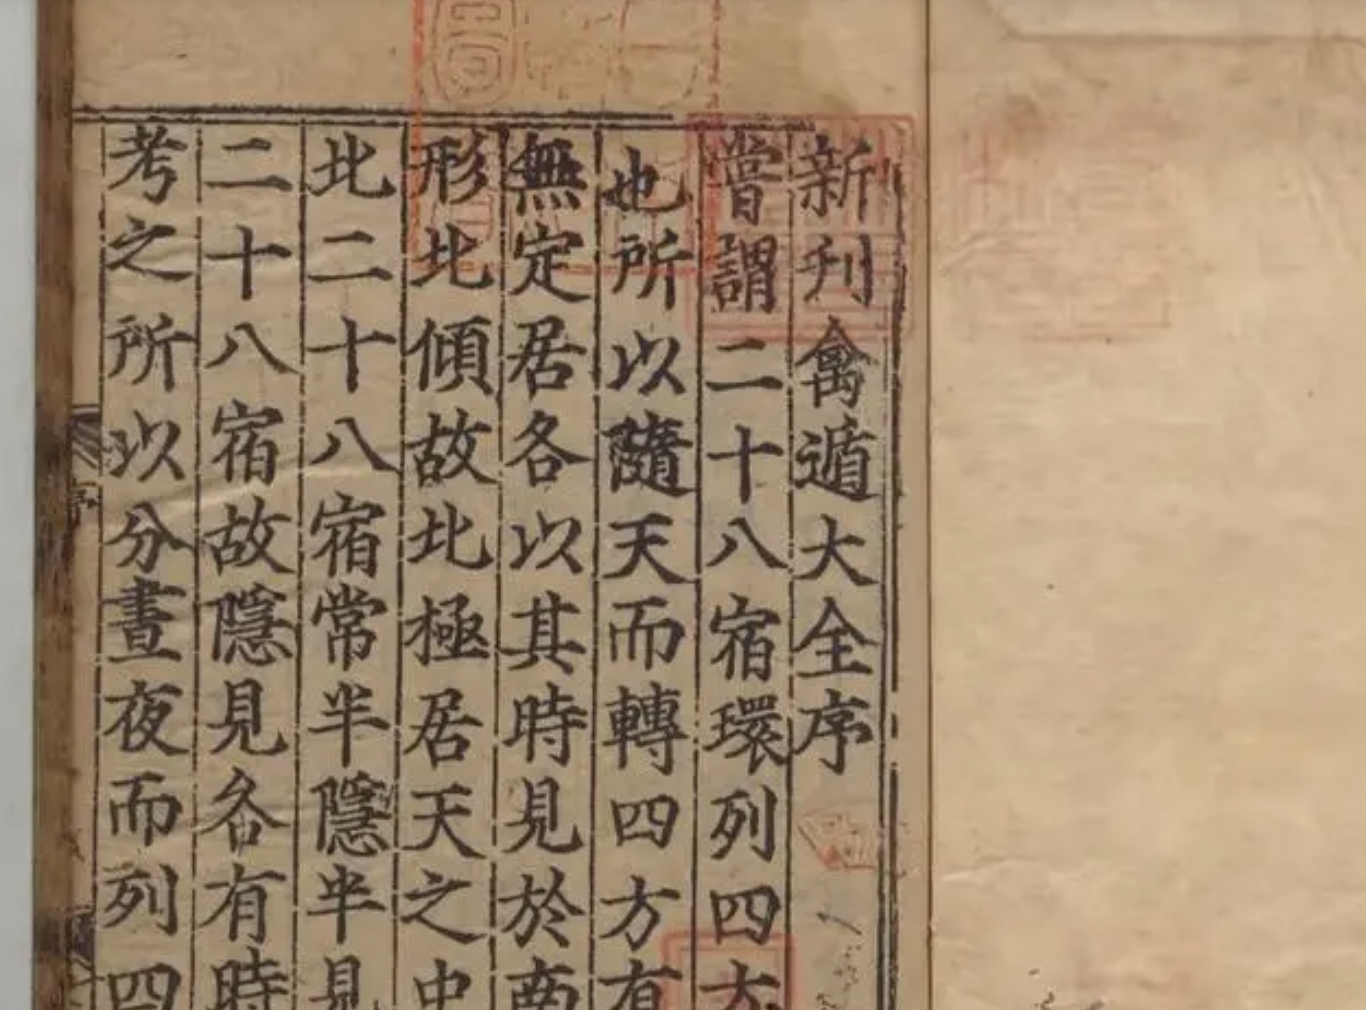 新刋禽遁大全序
嘗謂二十八宿環列四
也所以隨天而轉四方有
無定居各以其時見於南
形北傾故北極居天之中
北二十八宿常半隱半見
二十八宿故隱見各有時
考之所以分晝夜而列四